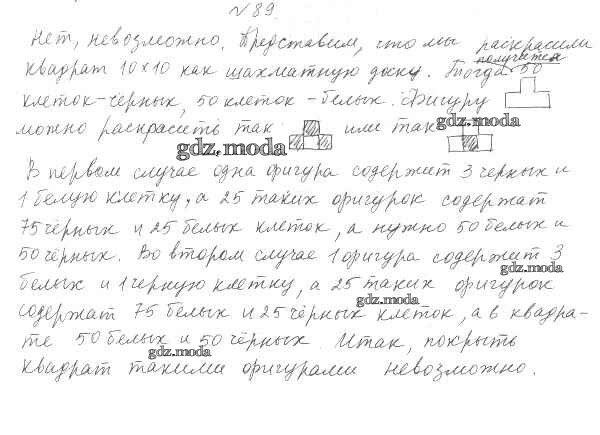 № 89.
Нет, невозможно. Представим, что мы раскрасили
квадрат 10×10 как шахматную доску. Тогда получится 50
клеток-чёрных, 50 клеток - белых. Фигуру
можно раскрасить так или так
gdz.moda
gdz.moda
В первом случае одна фигура содержит 3 черных и
1 белую клетку, а 25 таких фигурок содержат
75 чёрных и 25 белых клеток, а нужно 50 белых и
50 чёрных. Во втором случае 1 фигура содержит 3
gdz.moda
белых и 1 черную клетку, а 25 таких фигурок
gdz.moda
содержат 75 белых и 25 чёрных клеток, а в квадра-
те 50 белых и 50 чёрных. Итак, покрыть
gdz.moda
квадрат такими фигурами невозможно.